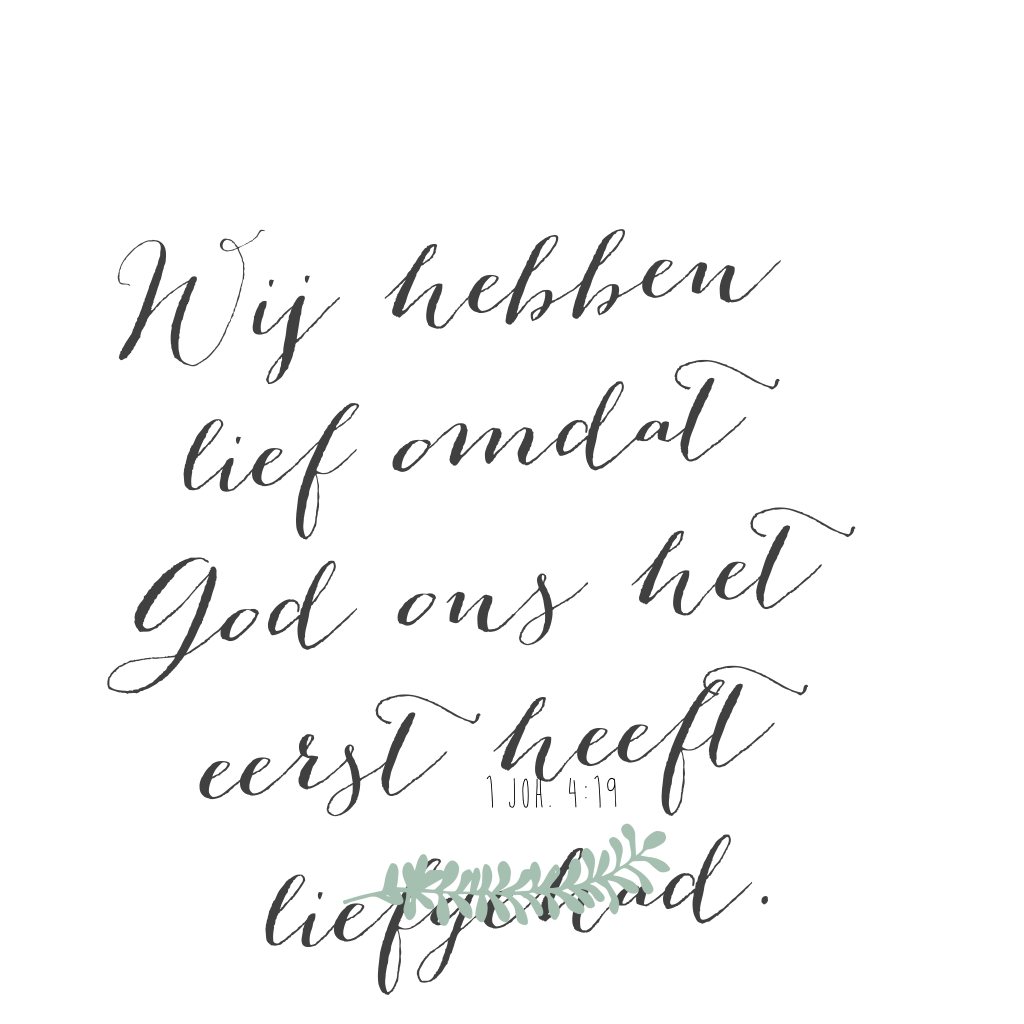 Wij hebben
lief omdat
God ons het
eerst heeft
1 JOH. 4:19
liefgehad.